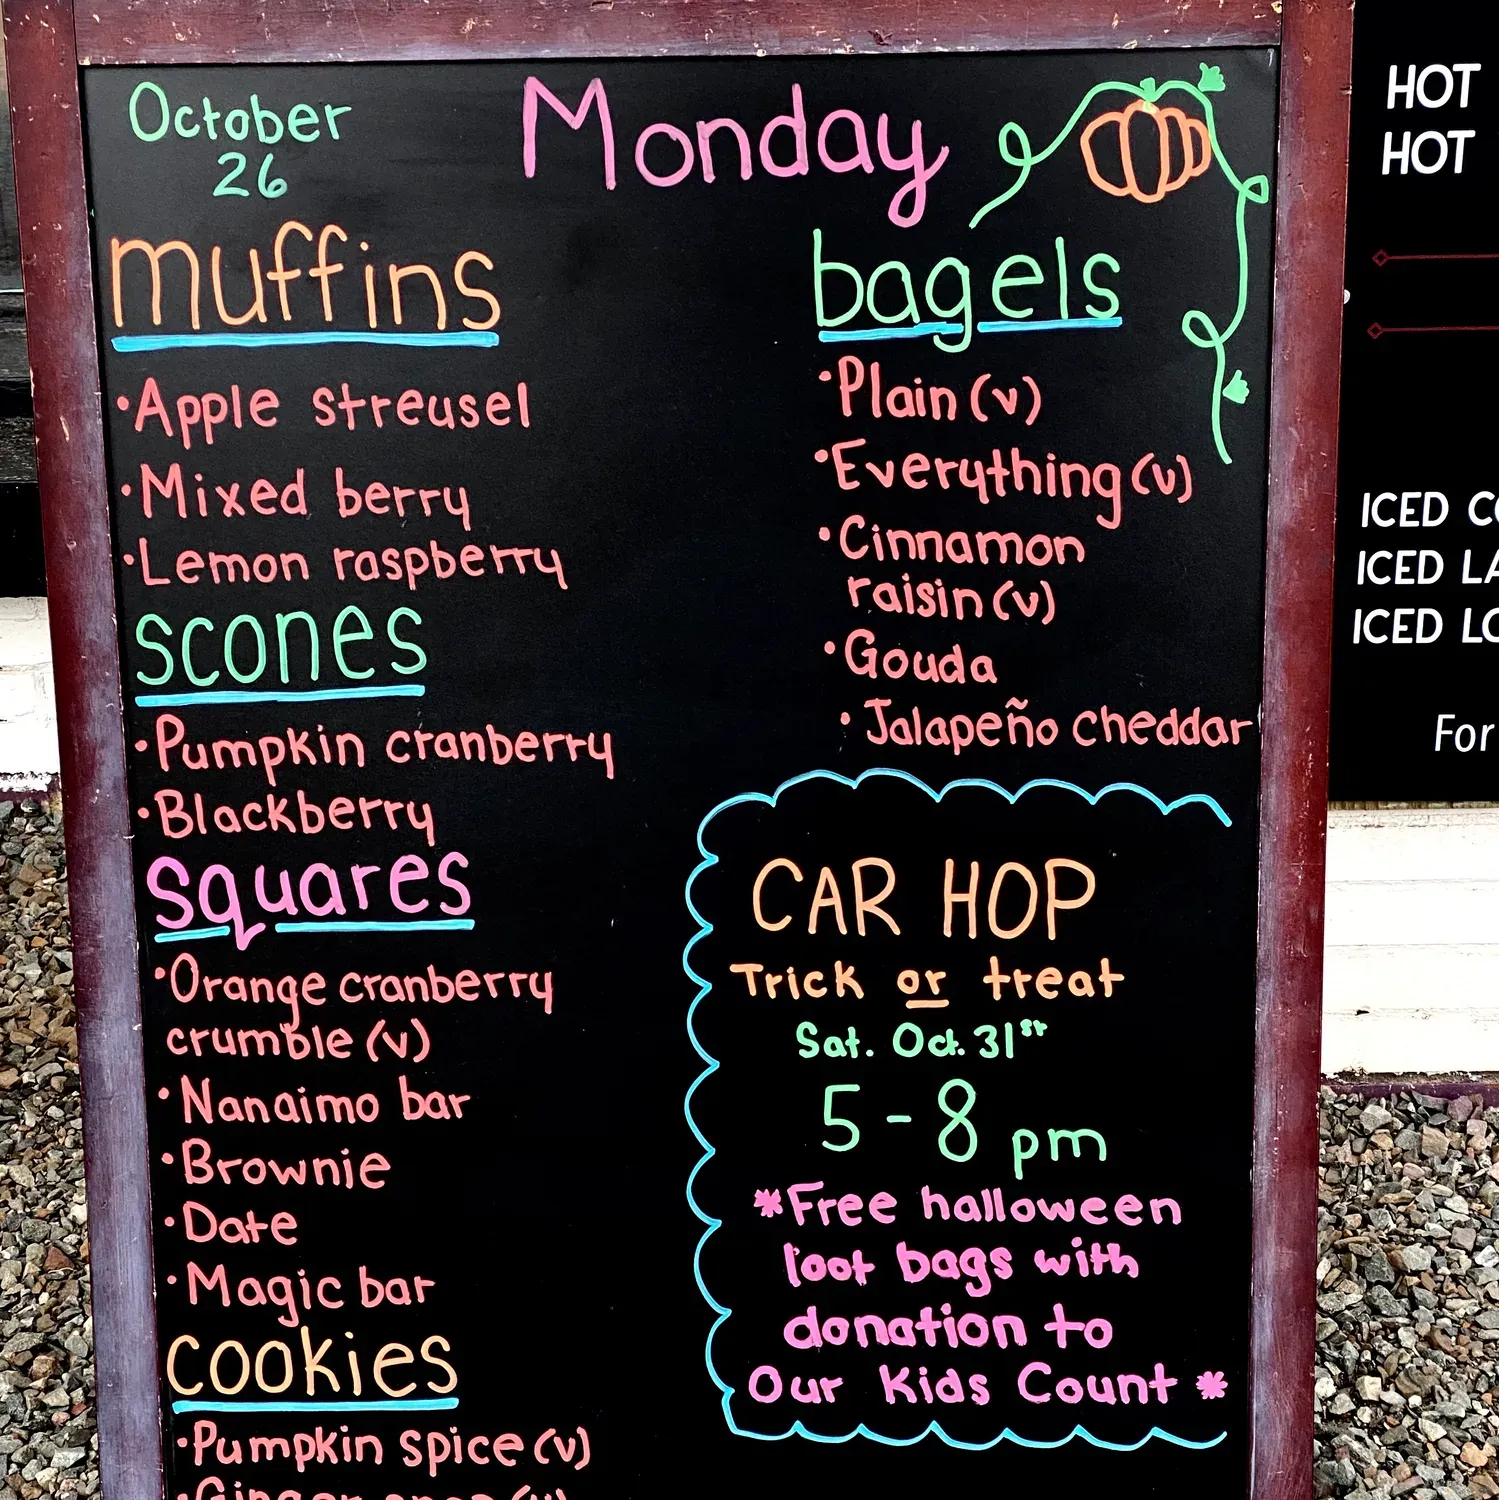 October
26
Monday
muffins
•Apple streusel
•Mixed berry
•Lemon raspberry
scones
•Pumpkin cranberry
•Blackberry
squares
•Orange cranberry
crumble (v)
•Nanaimo bar
•Brownie
•Date
•Magic bar
cookies
•Pumpkin spice (v)
bagels
•Plain (v)
•Everything (v)
•Cinnamon
raisin (v)
•Gouda
•Jalapeño cheddar
CAR HOP
Trick or treat
Sat. Oct. 31st
5-8 pm
*Free halloween
loot bags with
donation to
Our Kids Count *
HOT
HOT
ICED
ICED
ICED
For